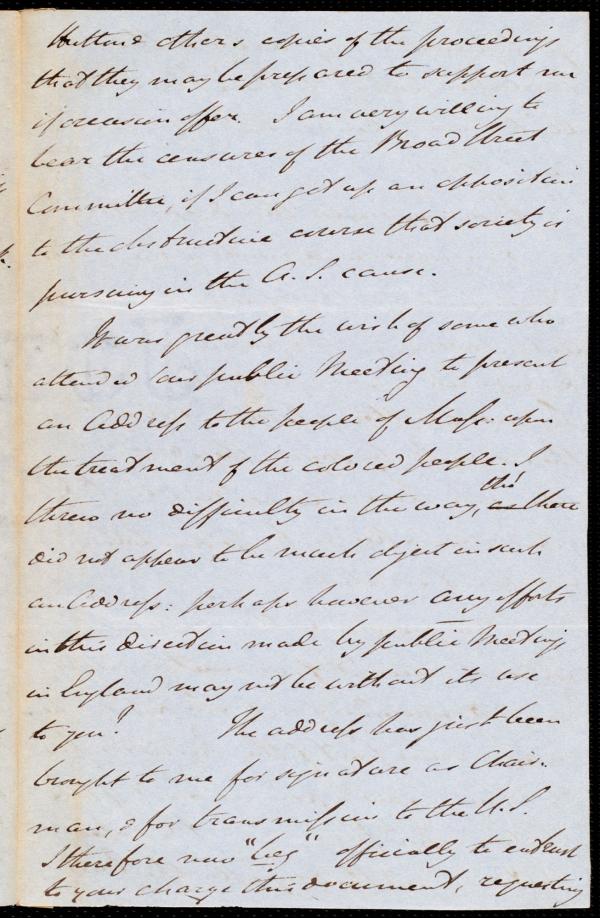 Hutton & others copies of the proceedings
that they may be prepared to support me
if occasion offer. I am very willing to
bear the censures of the Broad Street
Committee, if I can get up an opposition
to the destructive course that society is
pursuing in the A. S. cause.
It was greatly the wish of some who
attended our public Meeting to present
an Address to the people of Mass. upon
the treatment of the colored people. I
threw no difficulty in the way, tho' there
did not appear to be much object in such
an address: perhaps however any efforts
in this direction made by public Meetings
in England may not be without its use
to you? The address has just been
brought to me for signature as Chair-
man, & for transmission to the U.S.
I therefore now "beg" officially to entrust
to your charge this document, requesting